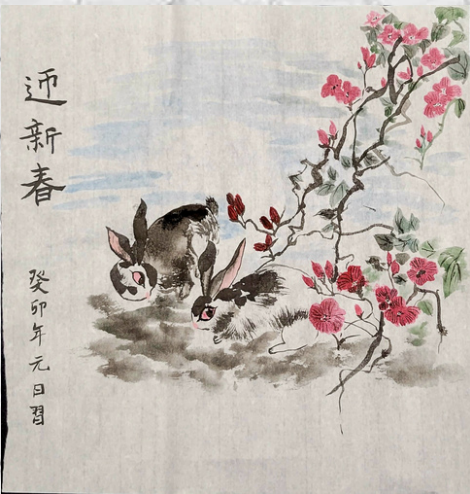 迎新春
癸卯年元日習